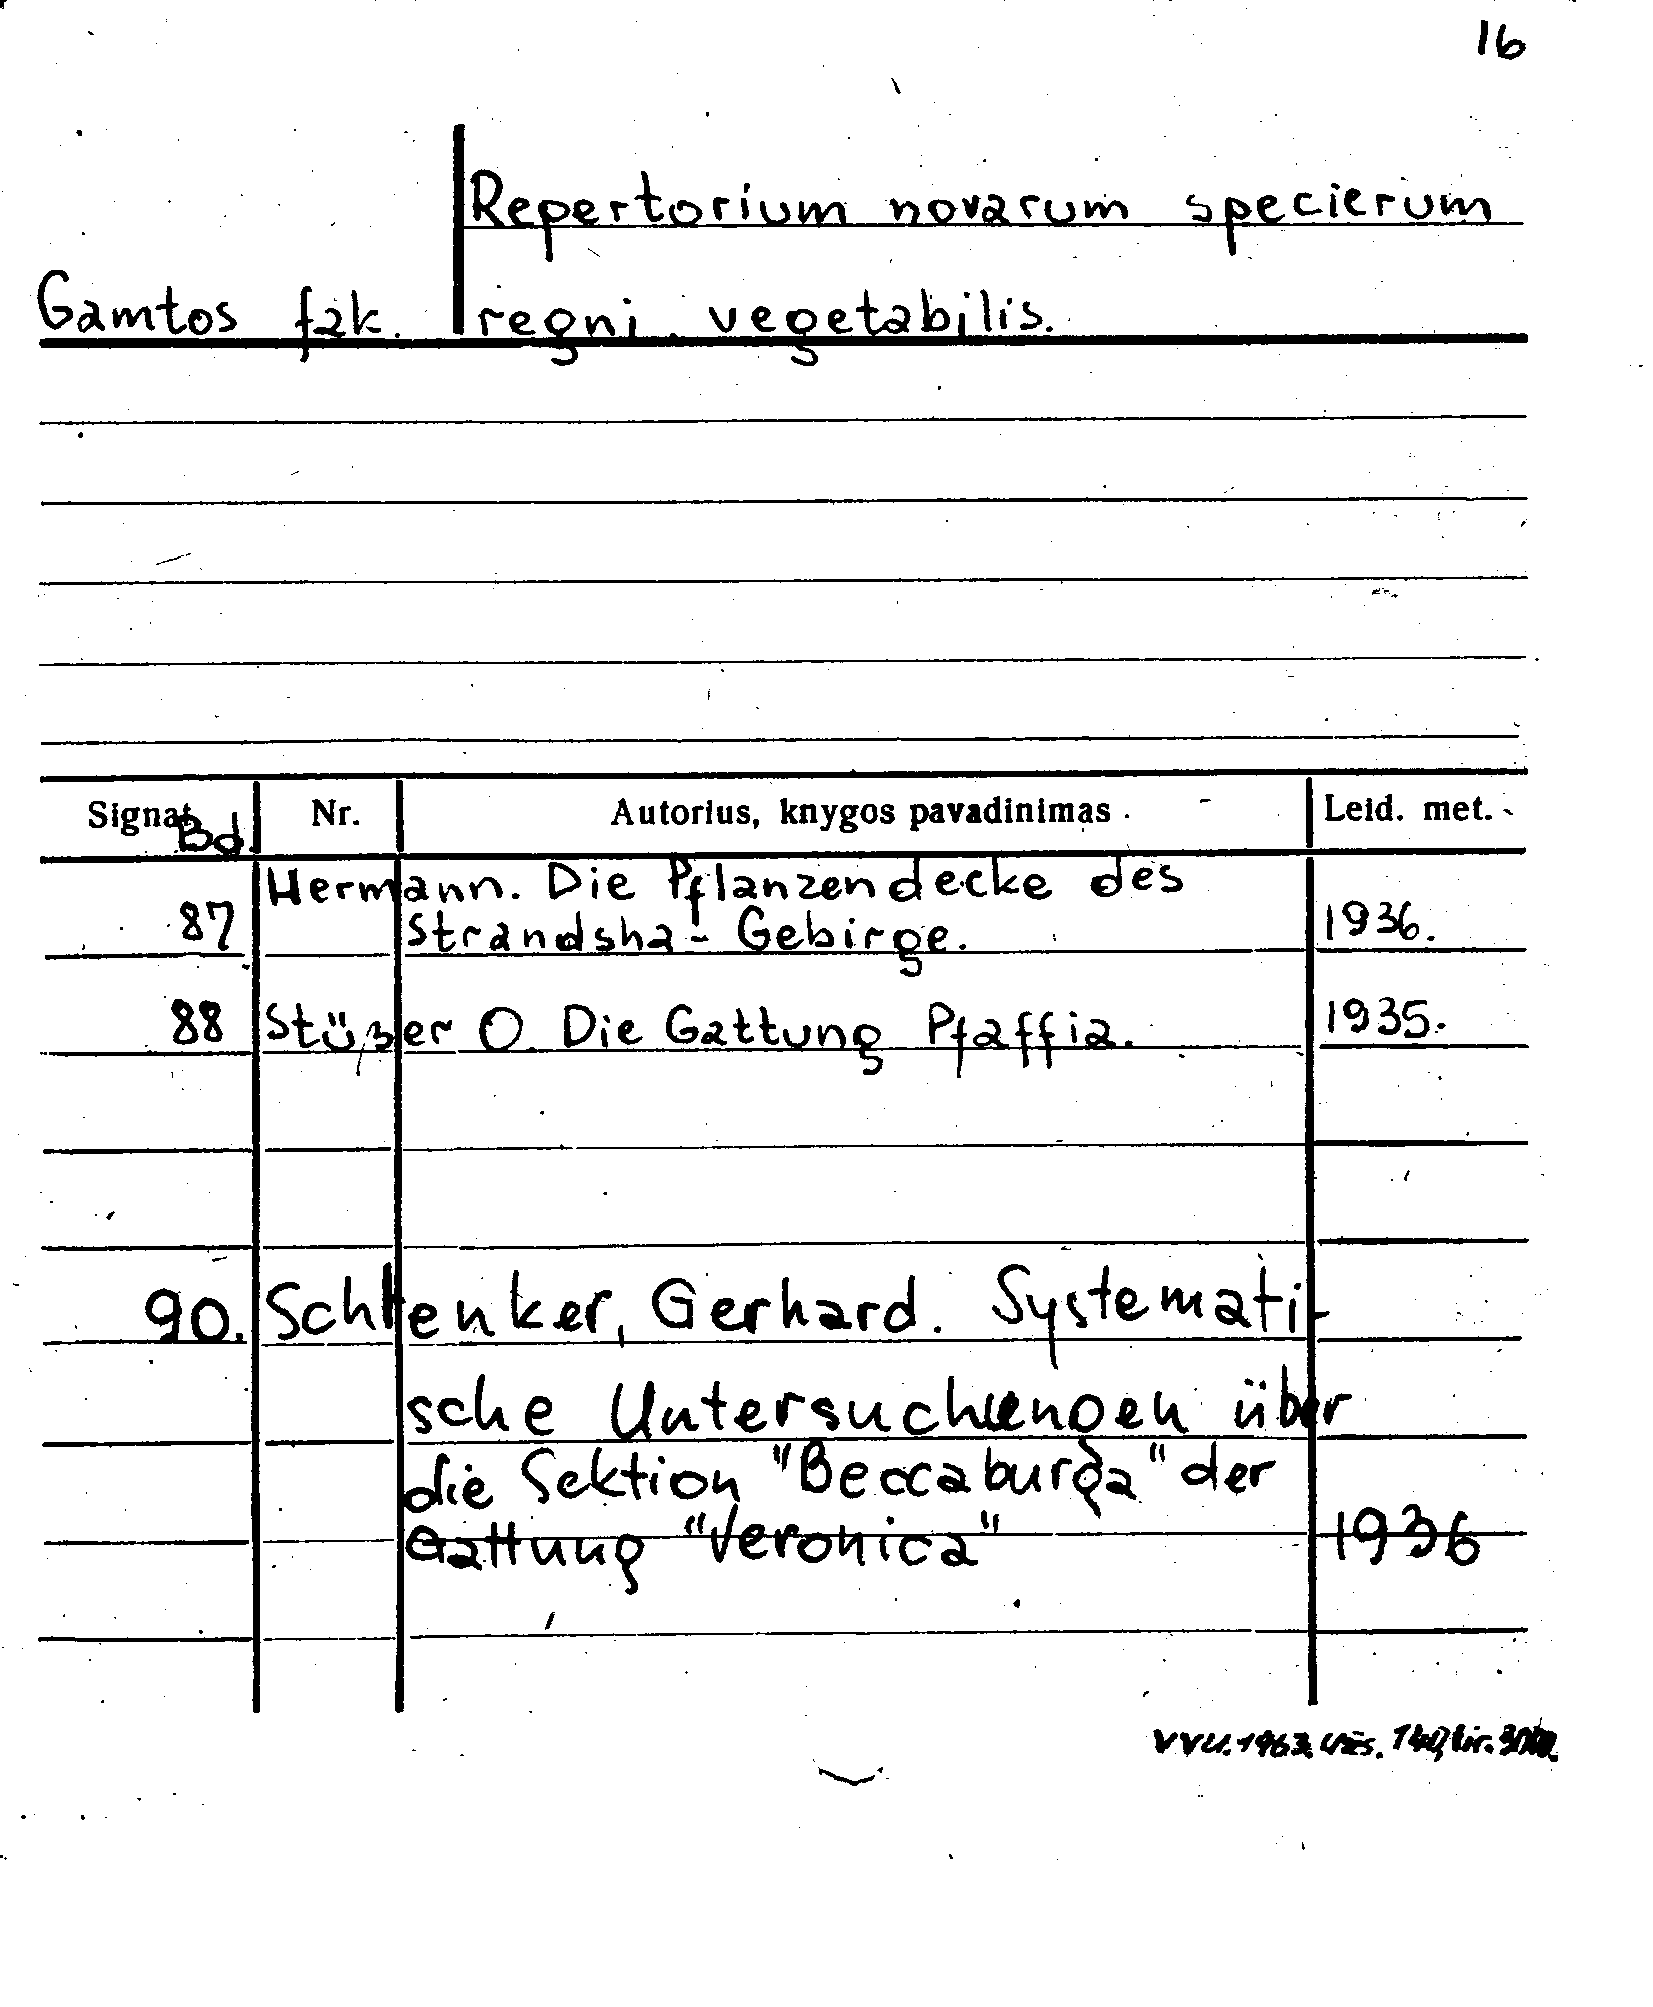 16
Repertorium novarum specierum
Gamtos fak. regni vegetabilis.
Signat. Nr. Autorius, knygos pavadinimas Leid. met.
Bd.
Hermann. Die Pflanzendecke des
87 Strandsha-Gebirge. 1936.
88 Stüzer O. Die Gattung Pfaffia. 1935.
90. Schlenker, Gerhard. Systemati-
sche Untersuchungen über
die Sektion "Beccabunga" der
Gattung "Veronica" 1936
VVU. 1963. Užs.